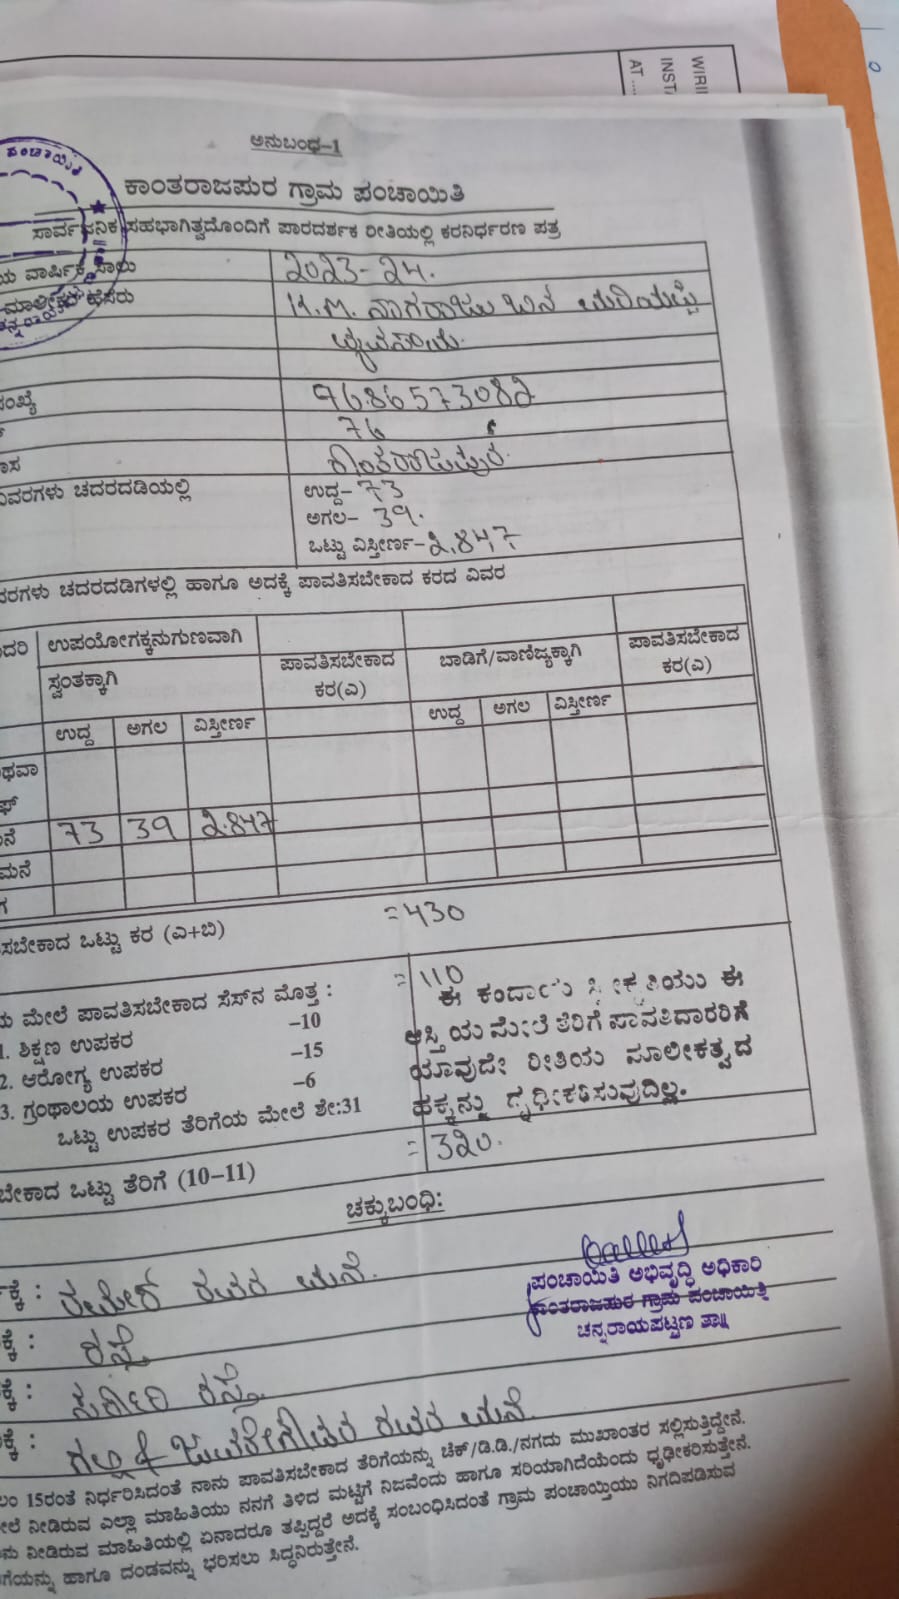 WIRI
INST
AT ....
ಅನುಬಂಧ-1
ಪಂಚಾಯಿತಿ
ಕಾಂತರಾಜಪುರ ಗ್ರಾಮ ಪಂಚಾಯಿತಿ
ಸಾರ್ವಜನಿಕ ಸಹಭಾಗಿತ್ವದೊಂದಿಗೆ ಪಾರದರ್ಶಕ ರೀತಿಯಲ್ಲಿ ಕರನಿರ್ಧರಣ ಪತ್ರ
ಯ ವಾರ್ಷಿಕ ಸಾಲು 2023-24.
ಮಾಲೀಕರ ಹೆಸರು H.M. ನಾಗರಾಜು ಬಿನ್
ವ್ಯವಸಾಯ.
ಸಂಖ್ಯೆ 9686573082
76
ಾಸ ಕಾಂತರಾಜಪುರ.
ವಿವರಗಳು ಚದರದಡಿಯಲ್ಲಿ ಉದ್ದ- 73
ಅಗಲ- 39.
ಒಟ್ಟು ವಿಸ್ತೀರ್ಣ-2.847
ವರಗಳು ಚದರದಡಿಗಳಲ್ಲಿ ಹಾಗೂ ಅದಕ್ಕೆ ಪಾವತಿಸಬೇಕಾದ ಕರದ ವಿವರ
ಾದರಿ ಉಪಯೋಗಕ್ಕನುಗುಣವಾಗಿ
ಸ್ವಂತಕ್ಕಾಗಿ ಪಾವತಿಸಬೇಕಾದ ಕರ(ಎ) ಬಾಡಿಗೆ/ವಾಣಿಜ್ಯಕ್ಕಾಗಿ ಪಾವತಿಸಬೇಕಾದ ಕರ(ಎ)
ಉದ್ದ ಅಗಲ ವಿಸ್ತೀರ್ಣ ಉದ್ದ ಅಗಲ ವಿಸ್ತೀರ್ಣ
ಥವಾ
ಫ್
ನೆ 73 39 2.847
ಮನೆ
ಗ
ಸಬೇಕಾದ ಒಟ್ಟು ಕರ (ಎ+ಬಿ) =430
ಯ ಮೇಲೆ ಪಾವತಿಸಬೇಕಾದ ಸೆಸ್‌ನ ಮೊತ್ತ : = 110
1. ಶಿಕ್ಷಣ ಉಪಕರ -10
2. ಆರೋಗ್ಯ ಉಪಕರ -15
3. ಗ್ರಂಥಾಲಯ ಉಪಕರ -6
ಒಟ್ಟು ಉಪಕರ ತೆರಿಗೆಯ ಮೇಲೆ ಶೇ:31
ಈ ಕಂದಾಯ ಸ್ವೀಕೃತಿಯು ಈ
ಆಸ್ತಿಯ ಮೇಲೆ ತೆರಿಗೆ ಪಾವತಿದಾರರಿಗೆ
ಯಾವುದೇ ರೀತಿಯ ಮಾಲೀಕತ್ವದ
ಹಕ್ಕನ್ನು ದೃಢೀಕರಿಸುವುದಿಲ್ಲ.
ಬೇಕಾದ ಒಟ್ಟು ತೆರಿಗೆ (10-11) = 320.
ಚಕ್ಕುಬಂಧಿ:
ಕ್ಕೆ : ರಮೇಶ್ ರವರ ಮನೆ.
ಕ್ಕೆ : ರಸ್ತೆ
ಕ್ಕೆ : ಸರ್ಕಾರಿ ರಸ್ತೆ.
ಕ್ಕೆ : ಗಲ್ಲಿ & ಜವರೇಗೌಡರ ರವರ ಮನೆ.
ಪಂಚಾಯಿತಿ ಅಭಿವೃದ್ಧಿ ಅಧಿಕಾರಿ
ಕಾಂತರಾಜಪುರ ಗ್ರಾಮ ಪಂಚಾಯಿತಿ
ಚನ್ನರಾಯಪಟ್ಟಣ ತಾ॥
ಲಂ 15ರಂತೆ ನಿರ್ಧರಿಸಿದಂತೆ ನಾನು ಪಾವತಿಸಬೇಕಾದ ತೆರಿಗೆಯನ್ನು ಚೆಕ್/ಡಿ.ಡಿ./ನಗದು ಮುಖಾಂತರ ಸಲ್ಲಿಸುತ್ತಿದ್ದೇನೆ.
ೇಲೆ ನೀಡಿರುವ ಎಲ್ಲಾ ಮಾಹಿತಿಯು ನನಗೆ ತಿಳಿದ ಮಟ್ಟಿಗೆ ನಿಜವೆಂದು ಹಾಗೂ ಸರಿಯಾಗಿದೆಯೆಂದು ಧೃಢೀಕರಿಸುತ್ತೇನೆ.
ನು ನೀಡಿರುವ ಮಾಹಿತಿಯಲ್ಲಿ ಏನಾದರೂ ತಪ್ಪಿದ್ದರೆ ಅದಕ್ಕೆ ಸಂಬಂಧಿಸಿದಂತೆ ಗ್ರಾಮ ಪಂಚಾಯ್ತಿಯು ನಿಗದಿಪಡಿಸುವ
ಗೆಯನ್ನು ಹಾಗೂ ದಂಡವನ್ನು ಭರಿಸಲು ಸಿದ್ಧನಿರುತ್ತೇನೆ.